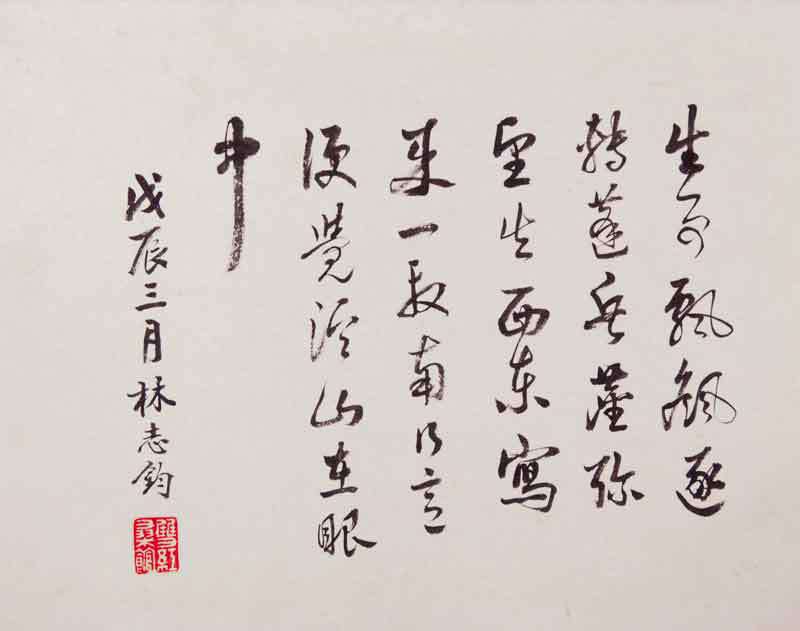 生飄飖逐
轉蓬弥
望失西東寫
来一段南行意
便覺溪山在眼
中
戊辰三月林志鈞
雙紅
館